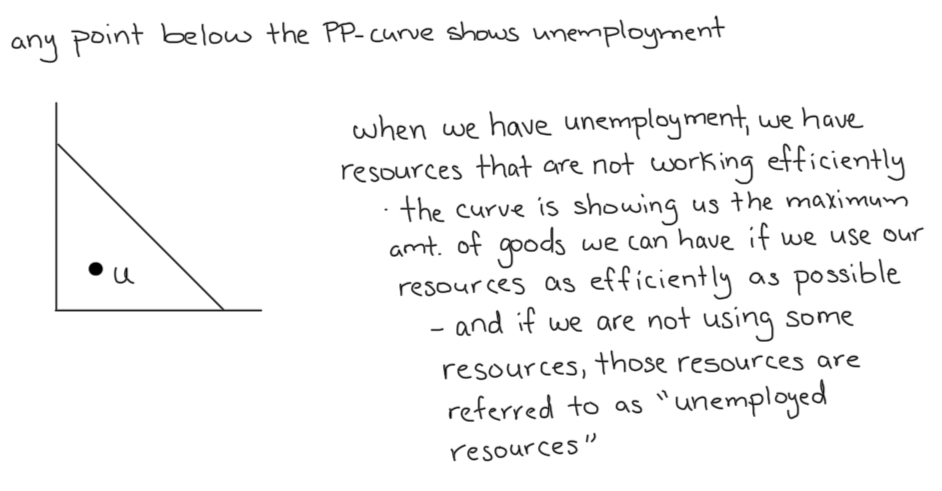 any point below the PP-curve shows unemployment
u
when we have unemployment, we have
resources that are not working efficiently
· the curve is showing us the maximum
amt. of goods we can have if we use our
resources as efficiently as possible
- and if we are not using some
resources, those resources are
referred to as "unemployed
resources"